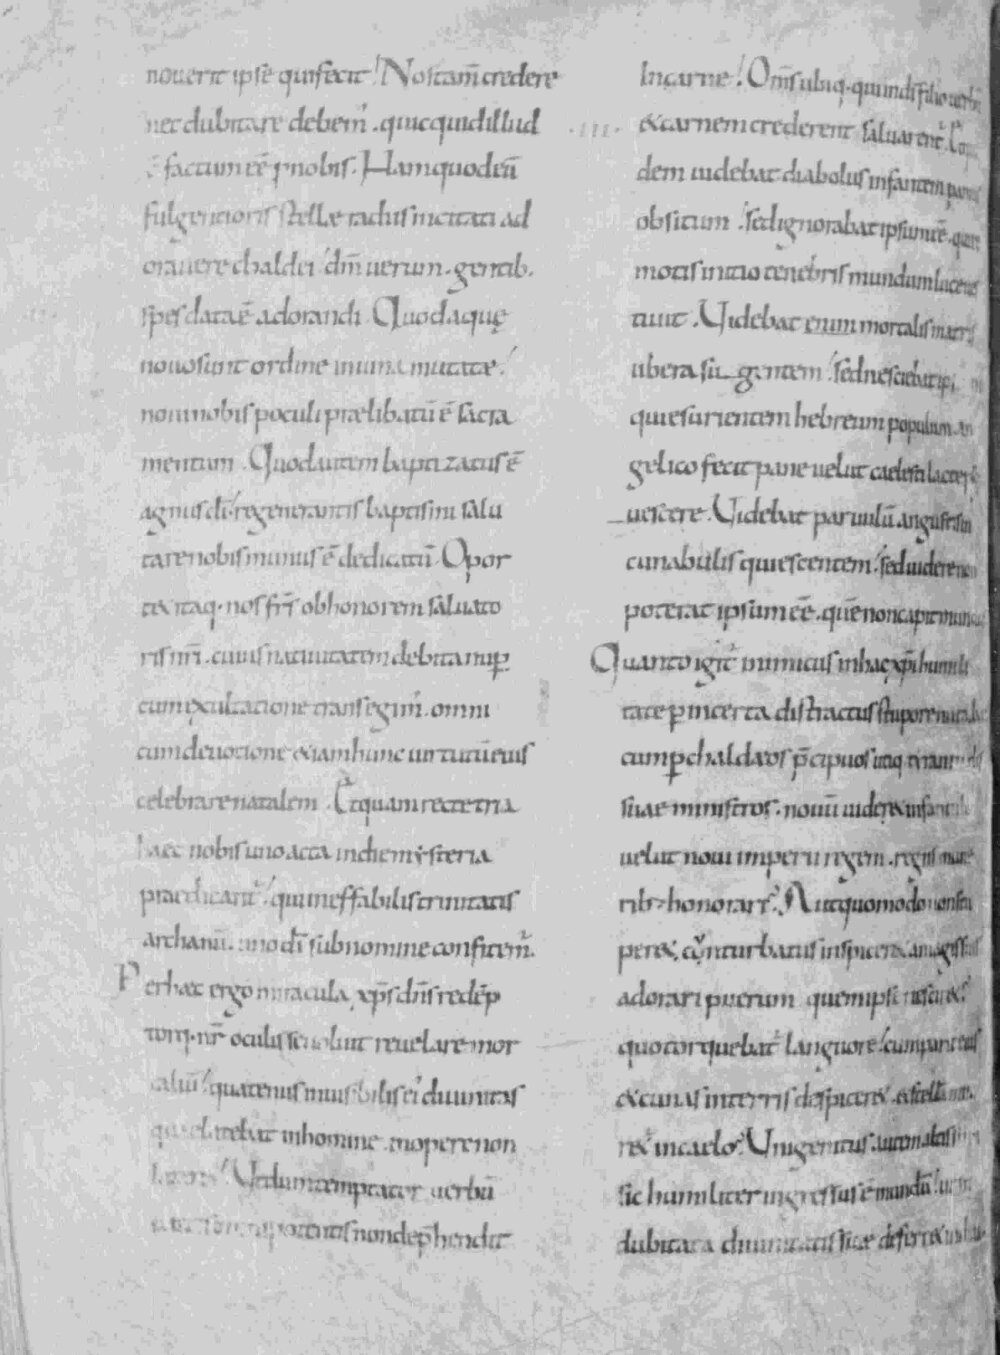 nouerit ipse qui fecit. Nos tam̄ credere
nec dubitare debem᷒. quicquid illud
ē factum eē p nobis. Nam quod eū
fulgentioris stellæ radiis incitati ad
orauere chaldei dn̄m uerum. gentib.
spes data ē adorandi. Quod aquę
nouo sunt ordine in uina mutatæ.
noui nobis poculi prælibatū ē sacra
mentum. Quod autem baptizatus ē
agnus dī. regenerantis baptismi salu
tare nobis munus ē dedicatū. Opor
tet itaq. nos fr̄s ob honorem saluato
ris nr̄i. cuius natiuitatem debita nup
cum exultatione transegim᷒. omni
cum deuotione &iam hunc uirtutū eius
celebrare natalem. Et quam recte tria
haec nobis uno acta in die mysteria
praedicant᷒. qui ineffabilis trinitatis
archanū. uno dī sub nomine confitem᷒.
Per haec ergo miracula xp̄s dn̄s redēp
torq. nr̄ oculis se uoluit reuelare mor
taliū. quatenus inuisibilis ei᷒ diuinitas
quae latebat in homine. in opere non
lateret. Et dum temptator uerbū
omnipotentis non dep̄hendit
In carne. Om̄s ubiq. qui in dī filio
& carnem crederent saluarent᷒.
dem uidebat diabolus infantem
obsitum. sed ignorabat ipsum eē.
motis initio tenebris mundum
tiuit. Uidebat enim mortalis matris
ubera sugentem. sed nesciebat
qui esurientem hebreum populum an
gelico fecit pane uelut caelesti lacte
uescere. Uidebat paruulū angustis in
cunabulis quiescentem. sed uidere non
poterat ipsum eē. quē non capit mundus
Quanto igit᷒ inimicus in hac xp̄i humili
tate p incerta distractus stupore
cum p chaldæos p̄cipuos utiq.
suae ministros. nouū uider&
uelut noui imperii regem. regiis mune
rib; honorari. Aut quomodo non
per&. conturbatus inspicer& a magis
adorari puerum quem ipse nescir&.
quo torquebat᷒ languore. cum
& cunas in terris despicer&.
r& in caelo. Unigenitus.
sic humiliter ingressus ē mundū.
dubitata diuinitatis suae